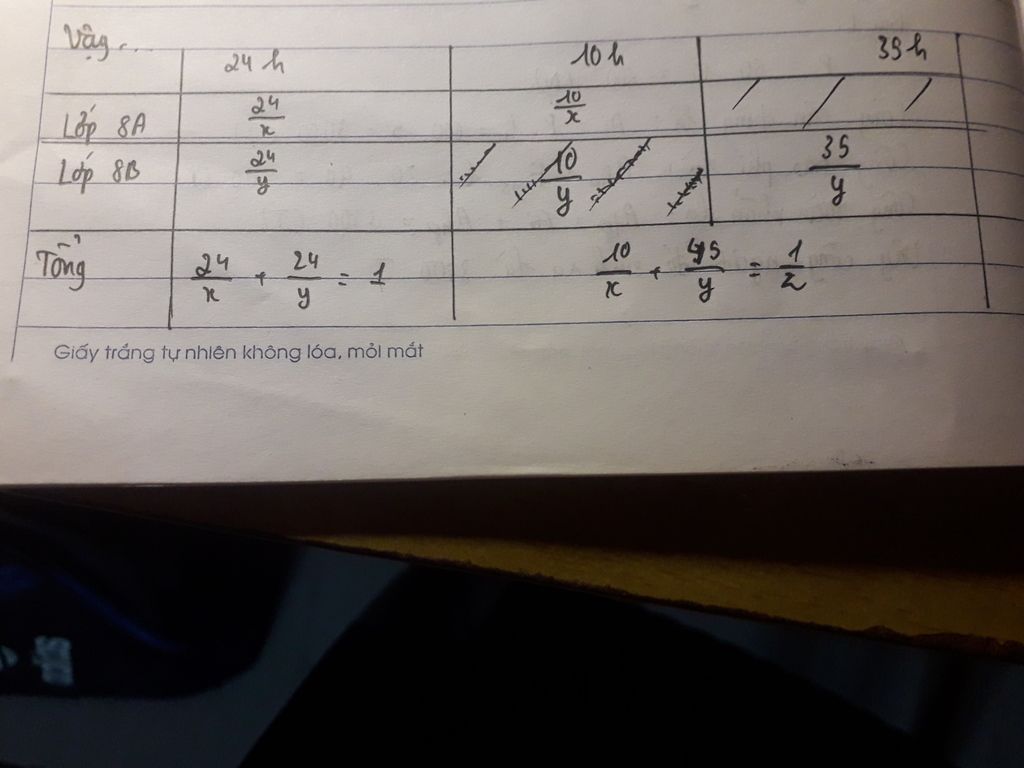 Vậy...
24 h 10 h 35 h
Lớp 8A 24/x 10/x / / /
Lớp 8B 24/y 10/y 35/y
Tổng 24/x + 24/y = 1 10/x + 45/y = 1/2
Giấy trắng tự nhiên không lóa, mỏi mắt